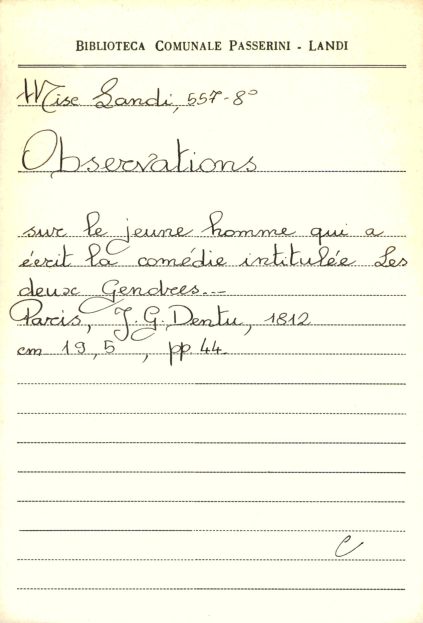 BIBLIOTECA COMUNALE PASSERINI - LANDI
Misc Landi, 557-8°
Observations
sur le jeune homme qui a
écrit la comédie intitulée Les
deux Gendres...
Paris, J.G. Dentu, 1812
cm 19,5, pp. 44.
C